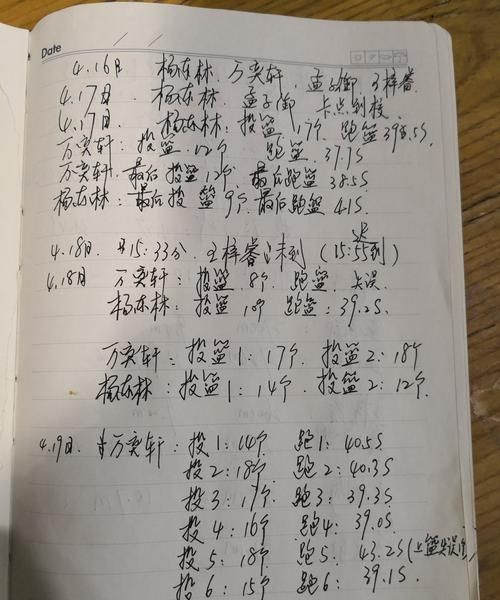 Date
4.16日 杨东林、万奕轩、孟子御、王梓睿
4.17日 杨东林、孟子御 卡点到校
4.17日 杨东林：投篮 17个 跑篮39.5S
万奕轩：投篮 12个 跑篮 37.7S
万奕轩：最后投篮12个 最后跑篮38.5S
杨东林：最后投篮9个 最后跑篮41S
4.18日 15:33分 王梓睿 未到（15:55到）
迟
4.18日 万奕轩：投篮 8个 跑篮 失误
杨东林：投篮 10个 跑篮：39.2S
万奕轩：投篮1：17个 投篮2：18个
杨东林：投篮1：14个 投篮2：12个
4.19日 万奕轩：投1：14个 跑1：40.5S
投2：18个 跑2：40.3S
投3：17个 跑3：39.3S
投4：16个 跑4：39.0S
投5：18个 跑5：43.2S（上篮失误1个）
投6：15个 跑6：39.1S